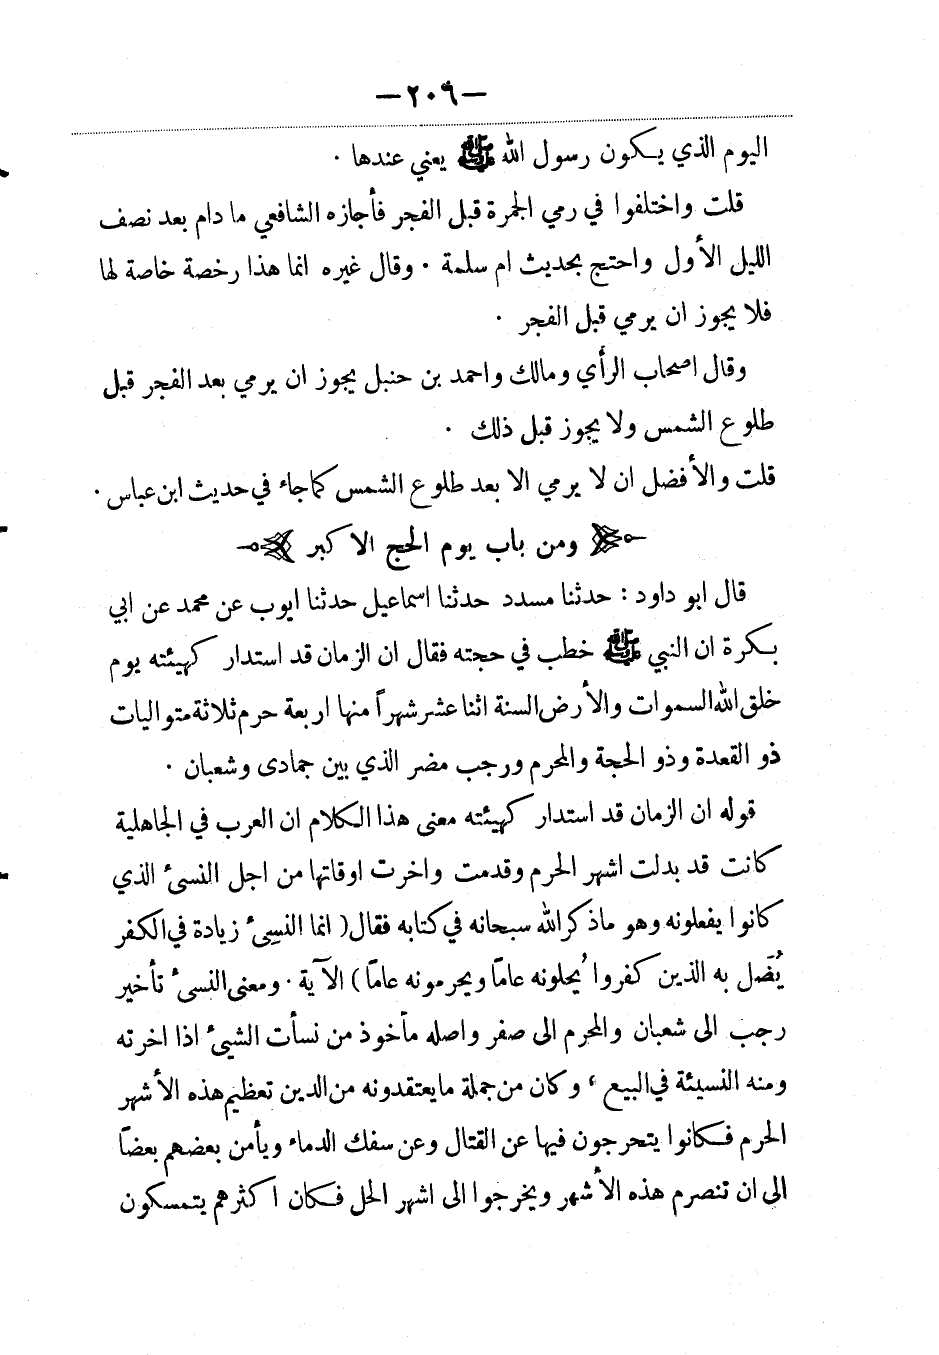 —٢٠٦—
اليوم الذي يكون رسول الله ﷺ يعني عندها ٠
قلت واختلفوا في رمي الجمرة قبل الفجر فأجازه الشافعي ما دام بعد نصف
الليل الأول واحتج بحديث ام سلمة ٠ وقال غيره انما هذا رخصة خاصة لها
فلا يجوز ان يرمي قبل الفجر ٠
وقال اصحاب الرأي ومالك واحمد بن حنبل يجوز ان يرمي بعد الفجر قبل
طلوع الشمس ولا يجوز قبل ذلك ٠
قلت والأفضل ان لا يرمي الا بعد طلوع الشمس كما جاء في حديث ابن عباس ٠
ومن باب يوم الحج الاكبر
قال ابو داود : حدثنا مسدد حدثنا اسماعيل حدثنا ايوب عن محمد عن ابي
بكرة ان النبي ﷺ خطب في حجته فقال ان الزمان قد استدار كهيئته يوم
خلق الله السموات والأرض السنة اثنا عشر شهراً منها اربعة حرم ثلاثة متواليات
ذو القعدة وذو الحجة والمحرم ورجب مضر الذي بين جمادى وشعبان ٠
قوله ان الزمان قد استدار كهيئته معنى هذا الكلام ان العرب في الجاهلية
كانت قد بدلت اشهر الحرم وقدمت واخرت اوقاتها من اجل النسئ الذي
كانوا يفعلونه وهو ما ذكر الله سبحانه في كتابه فقال ( انما النسِئ زيادة في الكفر
يُضَل به الذين كفروا يُحلونه عامًا ويحرمونه عامًا ) الآية ٠ ومعنى النسئ تأخير
رجب الى شعبان والمحرم الى صفر واصله مأخوذ من نسأت الشيئ اذا اخرته
ومنه النسيئة في البيع ، وكان من جملة ما يعتقدونه من الدين تعظيم هذه الأشهر
الحرم فكانوا يتحرجون فيها عن القتال وعن سفك الدماء ويأمن بعضهم بعضًا
الى ان تنصرم هذه الأشهر ويخرجوا الى اشهر الحل فكان اكثرهم يتمسكون